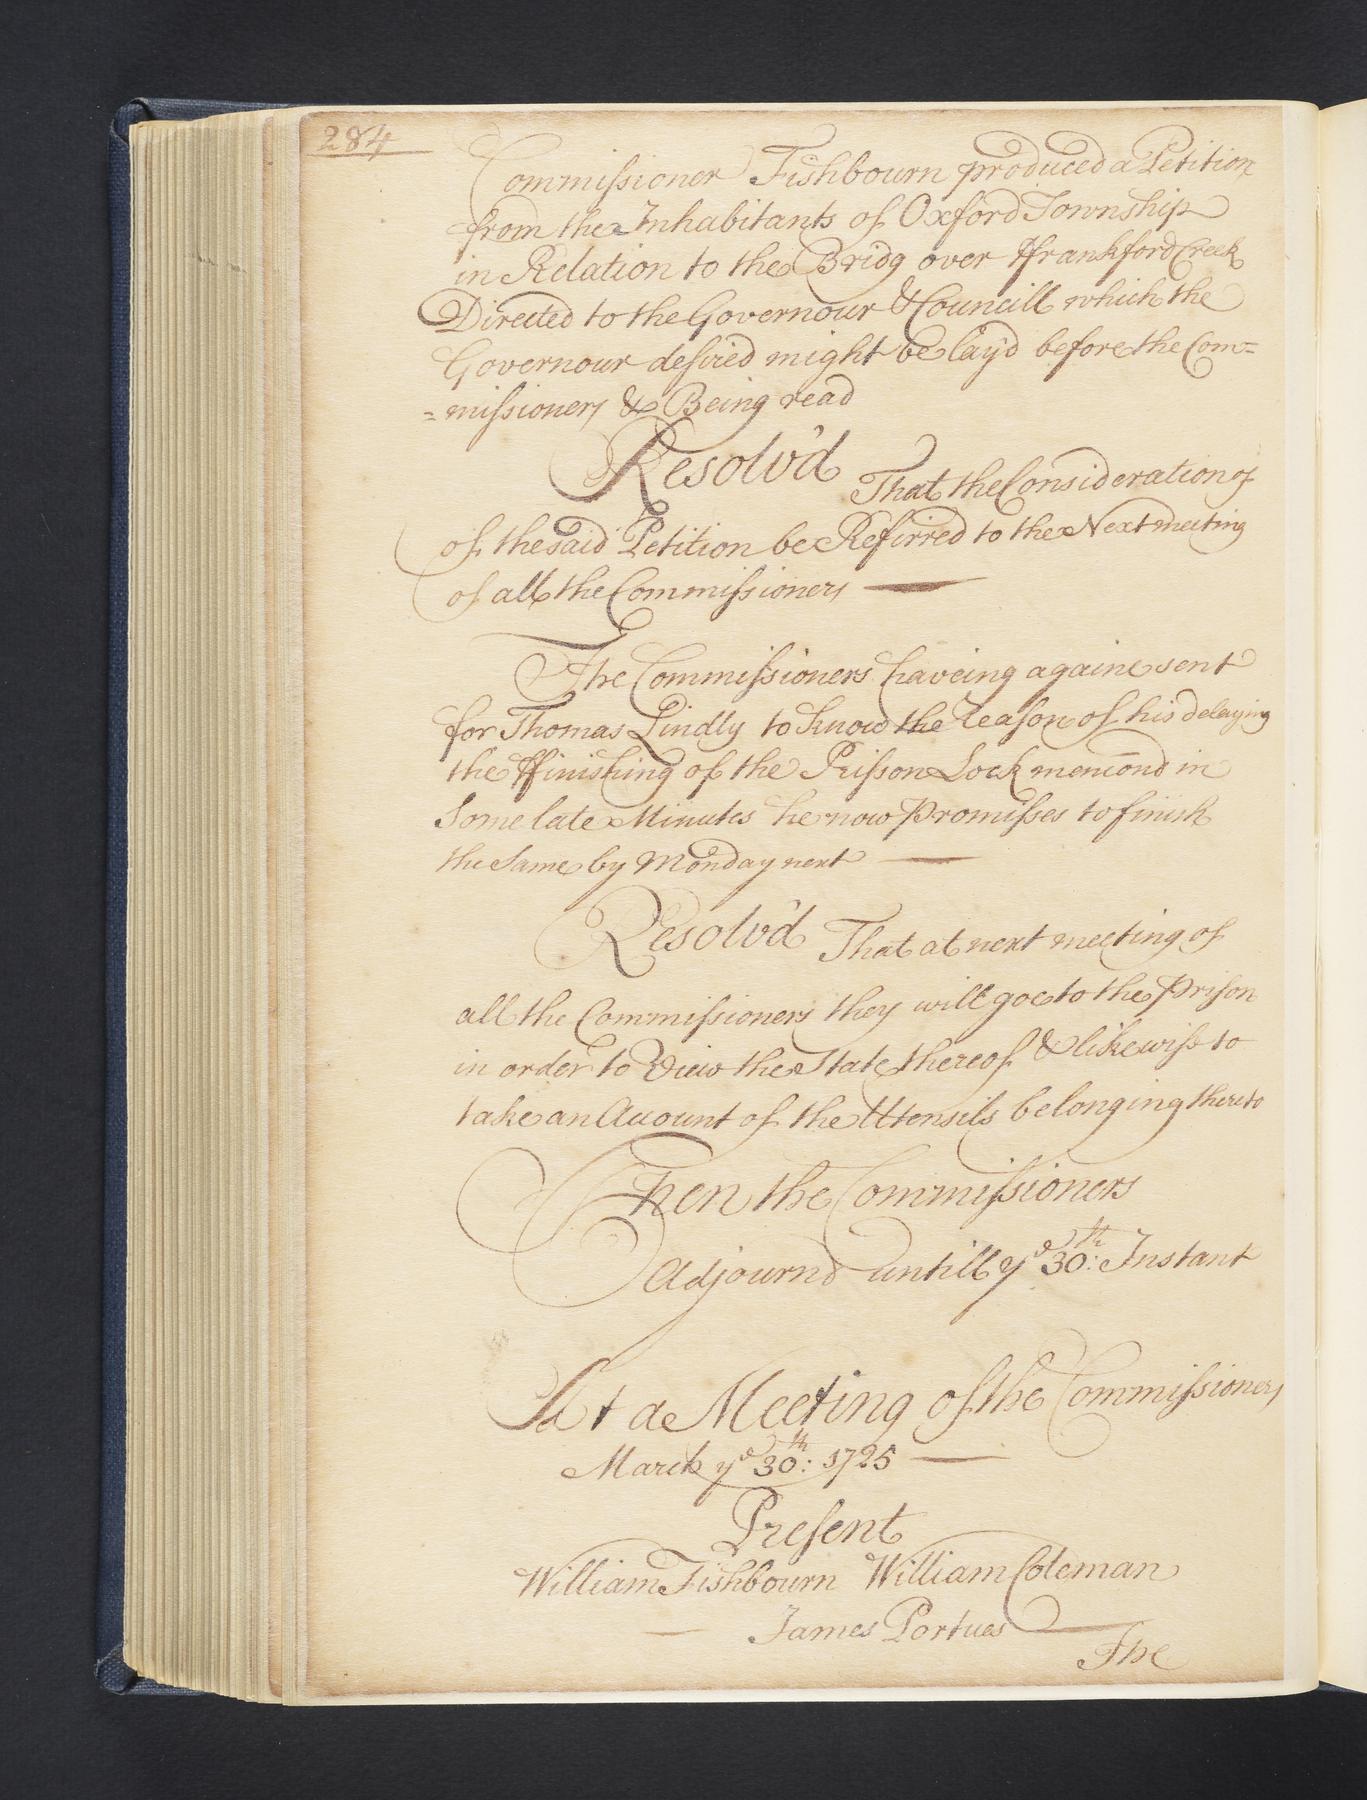 284
Commissioner Fishbourn produced a Petition
from the Inhabitants of Oxford Township
in Relation to the Bridg over ffrankford Creek
Directed to the Governour & Councill which the
Governour desired might be lay'd before the Com=
=missioners & Being read
Resolv'd That the Consideration of
of the said Petition be Referred to the Next meeting
of all the Commissioners
The Commissioners haveing againe sent
for Thomas Lindly to know the reason of his delaying
the ffinishing of the Prisson Lock mencond in
Some late Minutes he now Promisses to finish
the Same by Monday next
Resolv'd That at next meeting of
all the Commissioners they will goe to the Prison
in order to View the State thereof & likewise to
take an Account of the Utensils belonging thereto
Then the Commissioners
Adjournd untill ye 30th: Instant
At a Meeting of the Commissioners
March ye 30th: 1725
Present
William Fishbourn William Coleman
James Portues
The